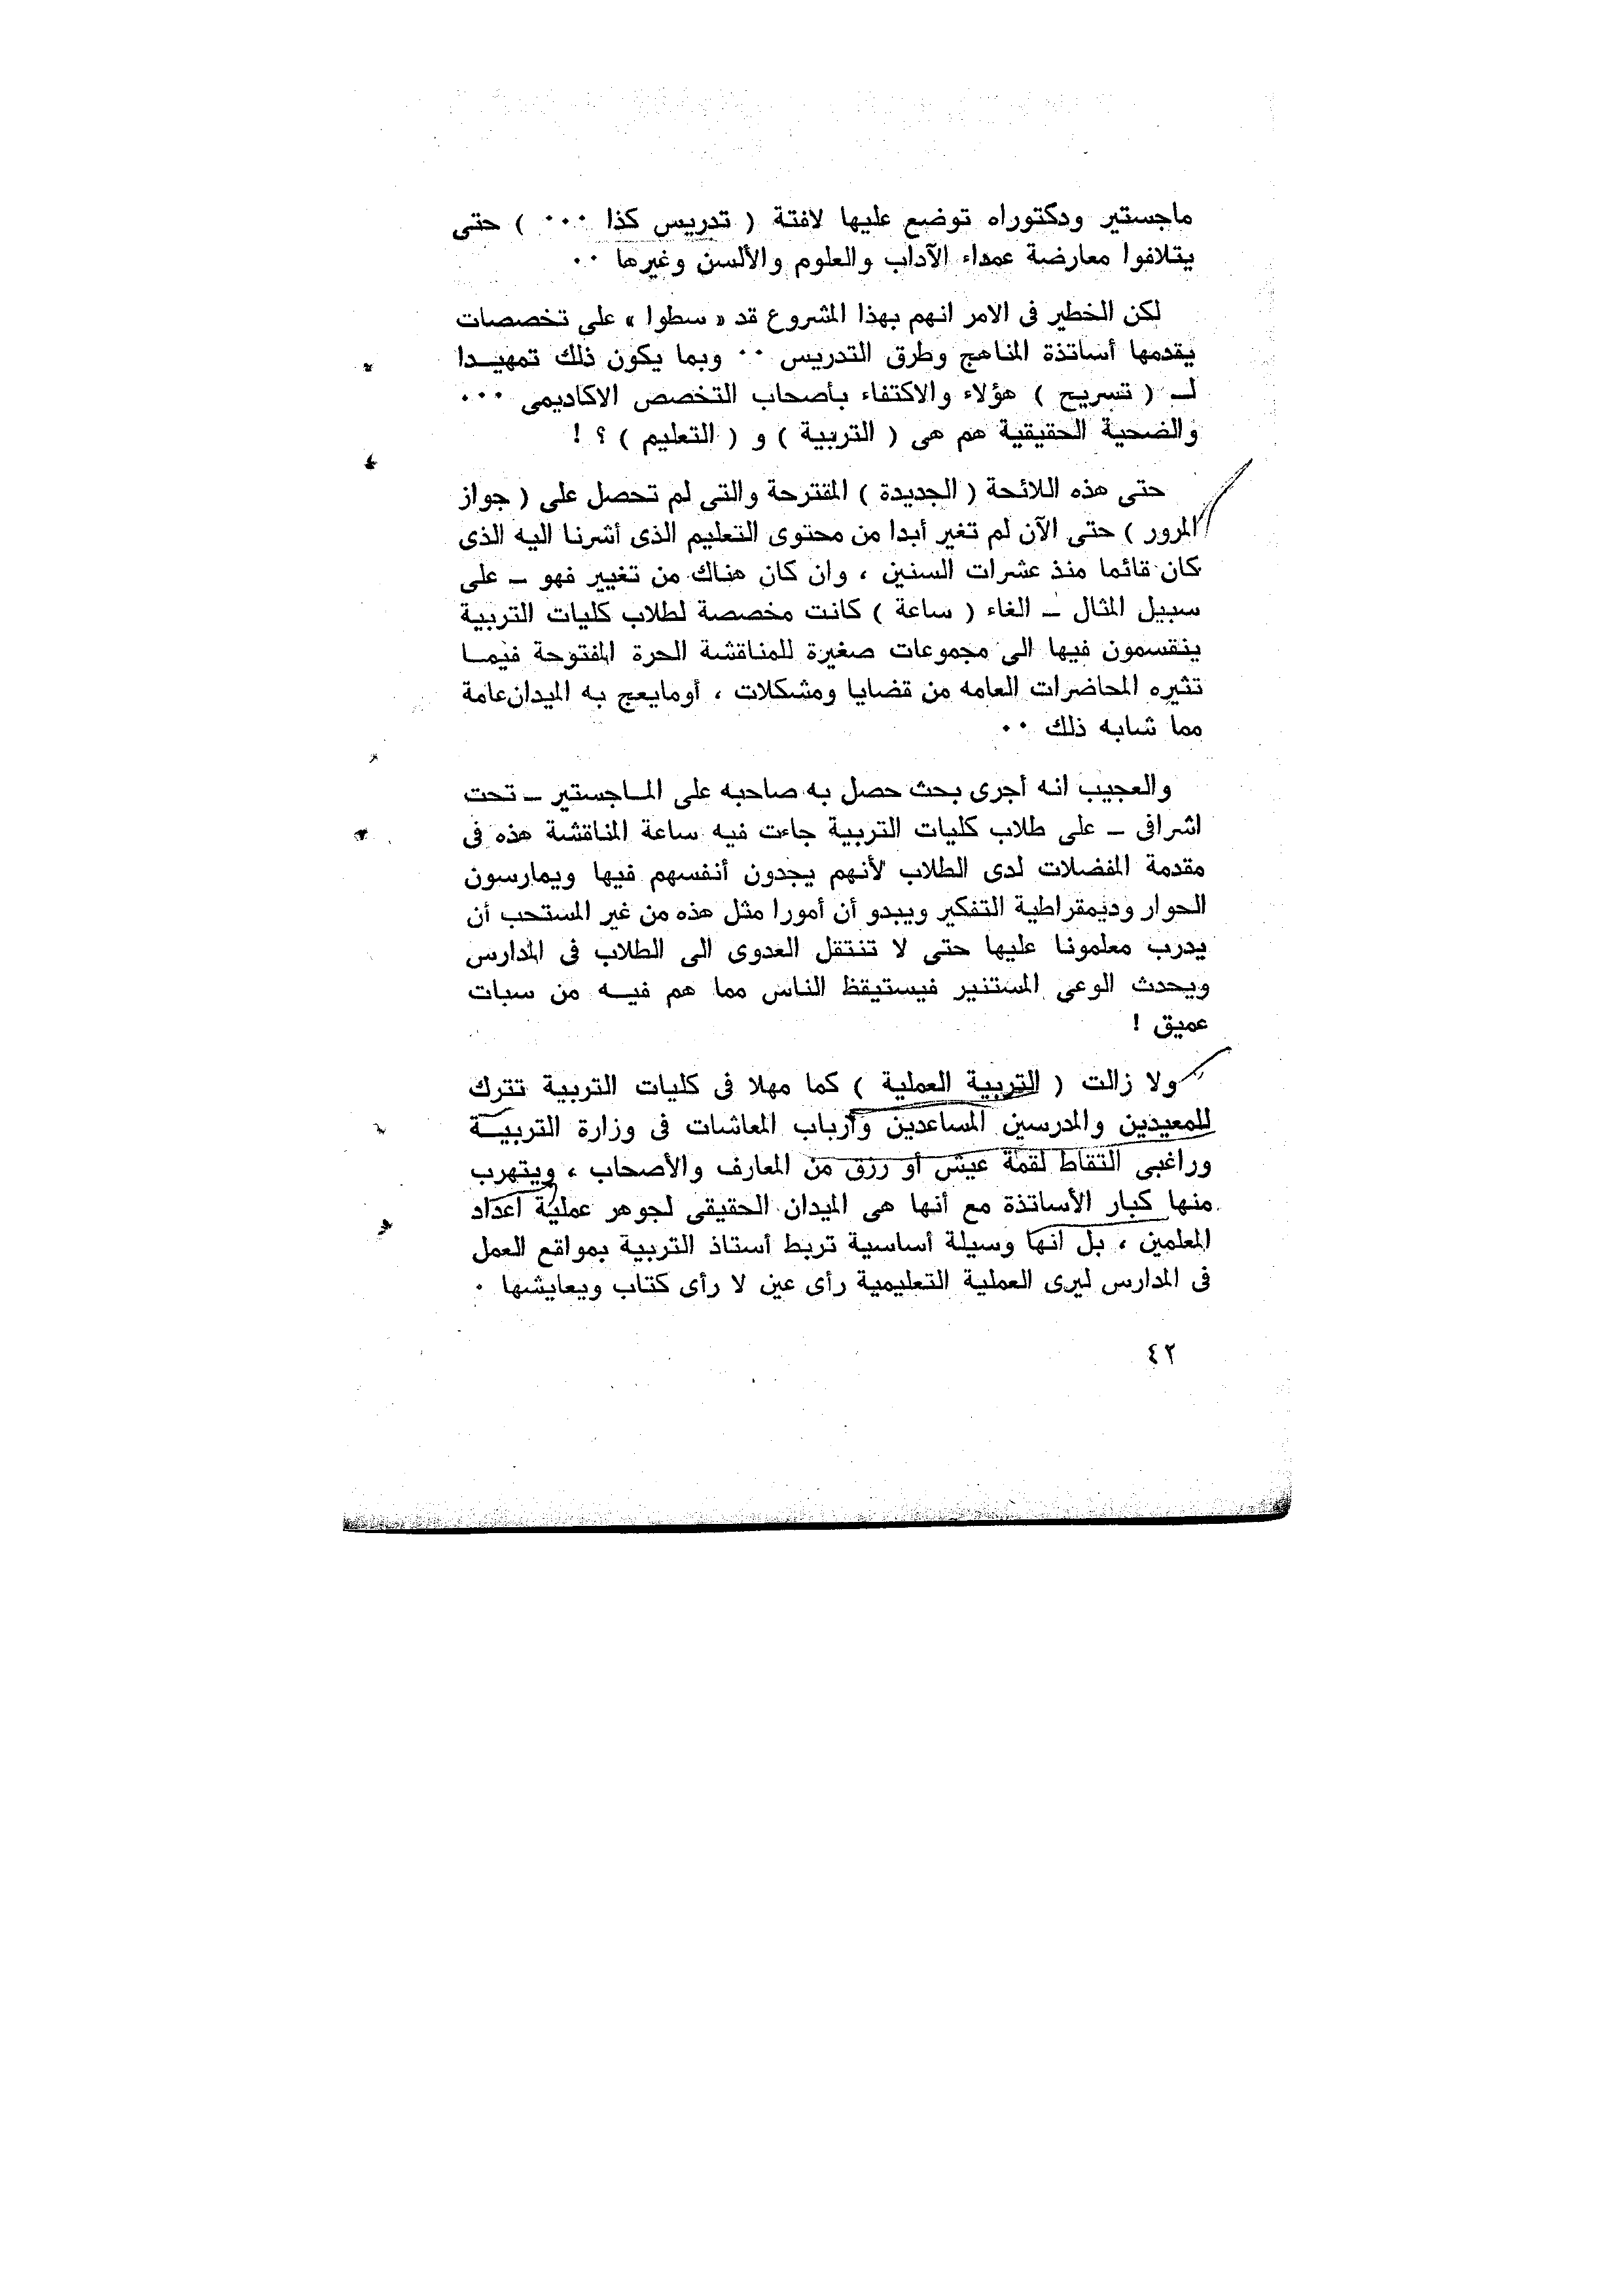 ماجستير ودكتوراه توضع عليها لافتة ( تدريس كذا ٠٠٠ ) حتى
يتلافوا معارضة عمداء الآداب والعلوم والألسن وغيرها ٠٠
لكن الخطير فى الامر انهم بهذا المشروع قد « سطوا » على تخصصات
يقدمها أساتذة المناهج وطرق التدريس ٠٠ وبما يكون ذلك تمهيـدا
لـ ( تسريح ) هؤلاء والاكتفاء بأصحاب التخصص الاكاديمى ٠٠٠
والضحية الحقيقية هم هى ( التربية ) و ( التعليم ) ؟ !
حتى هذه اللائحة ( الجديدة ) المقترحة والتى لم تحصل على ( جواز
المرور ) حتى الآن لم تغير أبدا من محتوى التعليم الذى أشرنا اليه الذى
كان قائما منذ عشرات السنين ، وان كان هناك من تغيير فهو ـ على
سبيل المثال ـ الغاء ( ساعة ) كانت مخصصة لطلاب كليات التربية
ينقسمون فيها الى مجموعات صغيرة للمناقشة الحرة المفتوحة فيمـا
تثيره المحاضرات العامه من قضايا ومشكلات ، أومايعج به الميدان عامة
مما شابه ذلك ٠٠
والعجيب انه أجرى بحث حصل به صاحبه على المـاجستير ـ تحت
اشرافى ـ على طلاب كليات التربية جاءت فيه ساعة المناقشة هذه فى
مقدمة المفضلات لدى الطلاب لأنهم يجدون أنفسهم فيها ويمارسون
الحوار وديمقراطية التفكير ويبدو أن أمورا مثل هذه من غير المستحب أن
يدرب معلمونا عليها حتى لا تنتقل العدوى الى الطلاب فى المدارس
ويحدث الوعى المستنير فيستيقظ الناس مما هم فيـه من سبات
عميق !
ولا زالت ( التربية العملية ) كما مهلا فى كليات التربية تترك
للمعيدين والمدرسين المساعدين وأرباب المعاشات فى وزارة التربيـة
وراغبى التقاط لقمة عيش أو رزق من المعارف والأصحاب ، ويتهرب
منها كبار الأساتذة مع أنها هى الميدان الحقيقى لجوهر عملية اعداد
المعلمين ، بل انها وسيلة أساسية تربط أستاذ التربية بمواقع العمل
فى المدارس ليرى العملية التعليمية رأى عين لا رأى كتاب ويعايشها ٠
٤٢